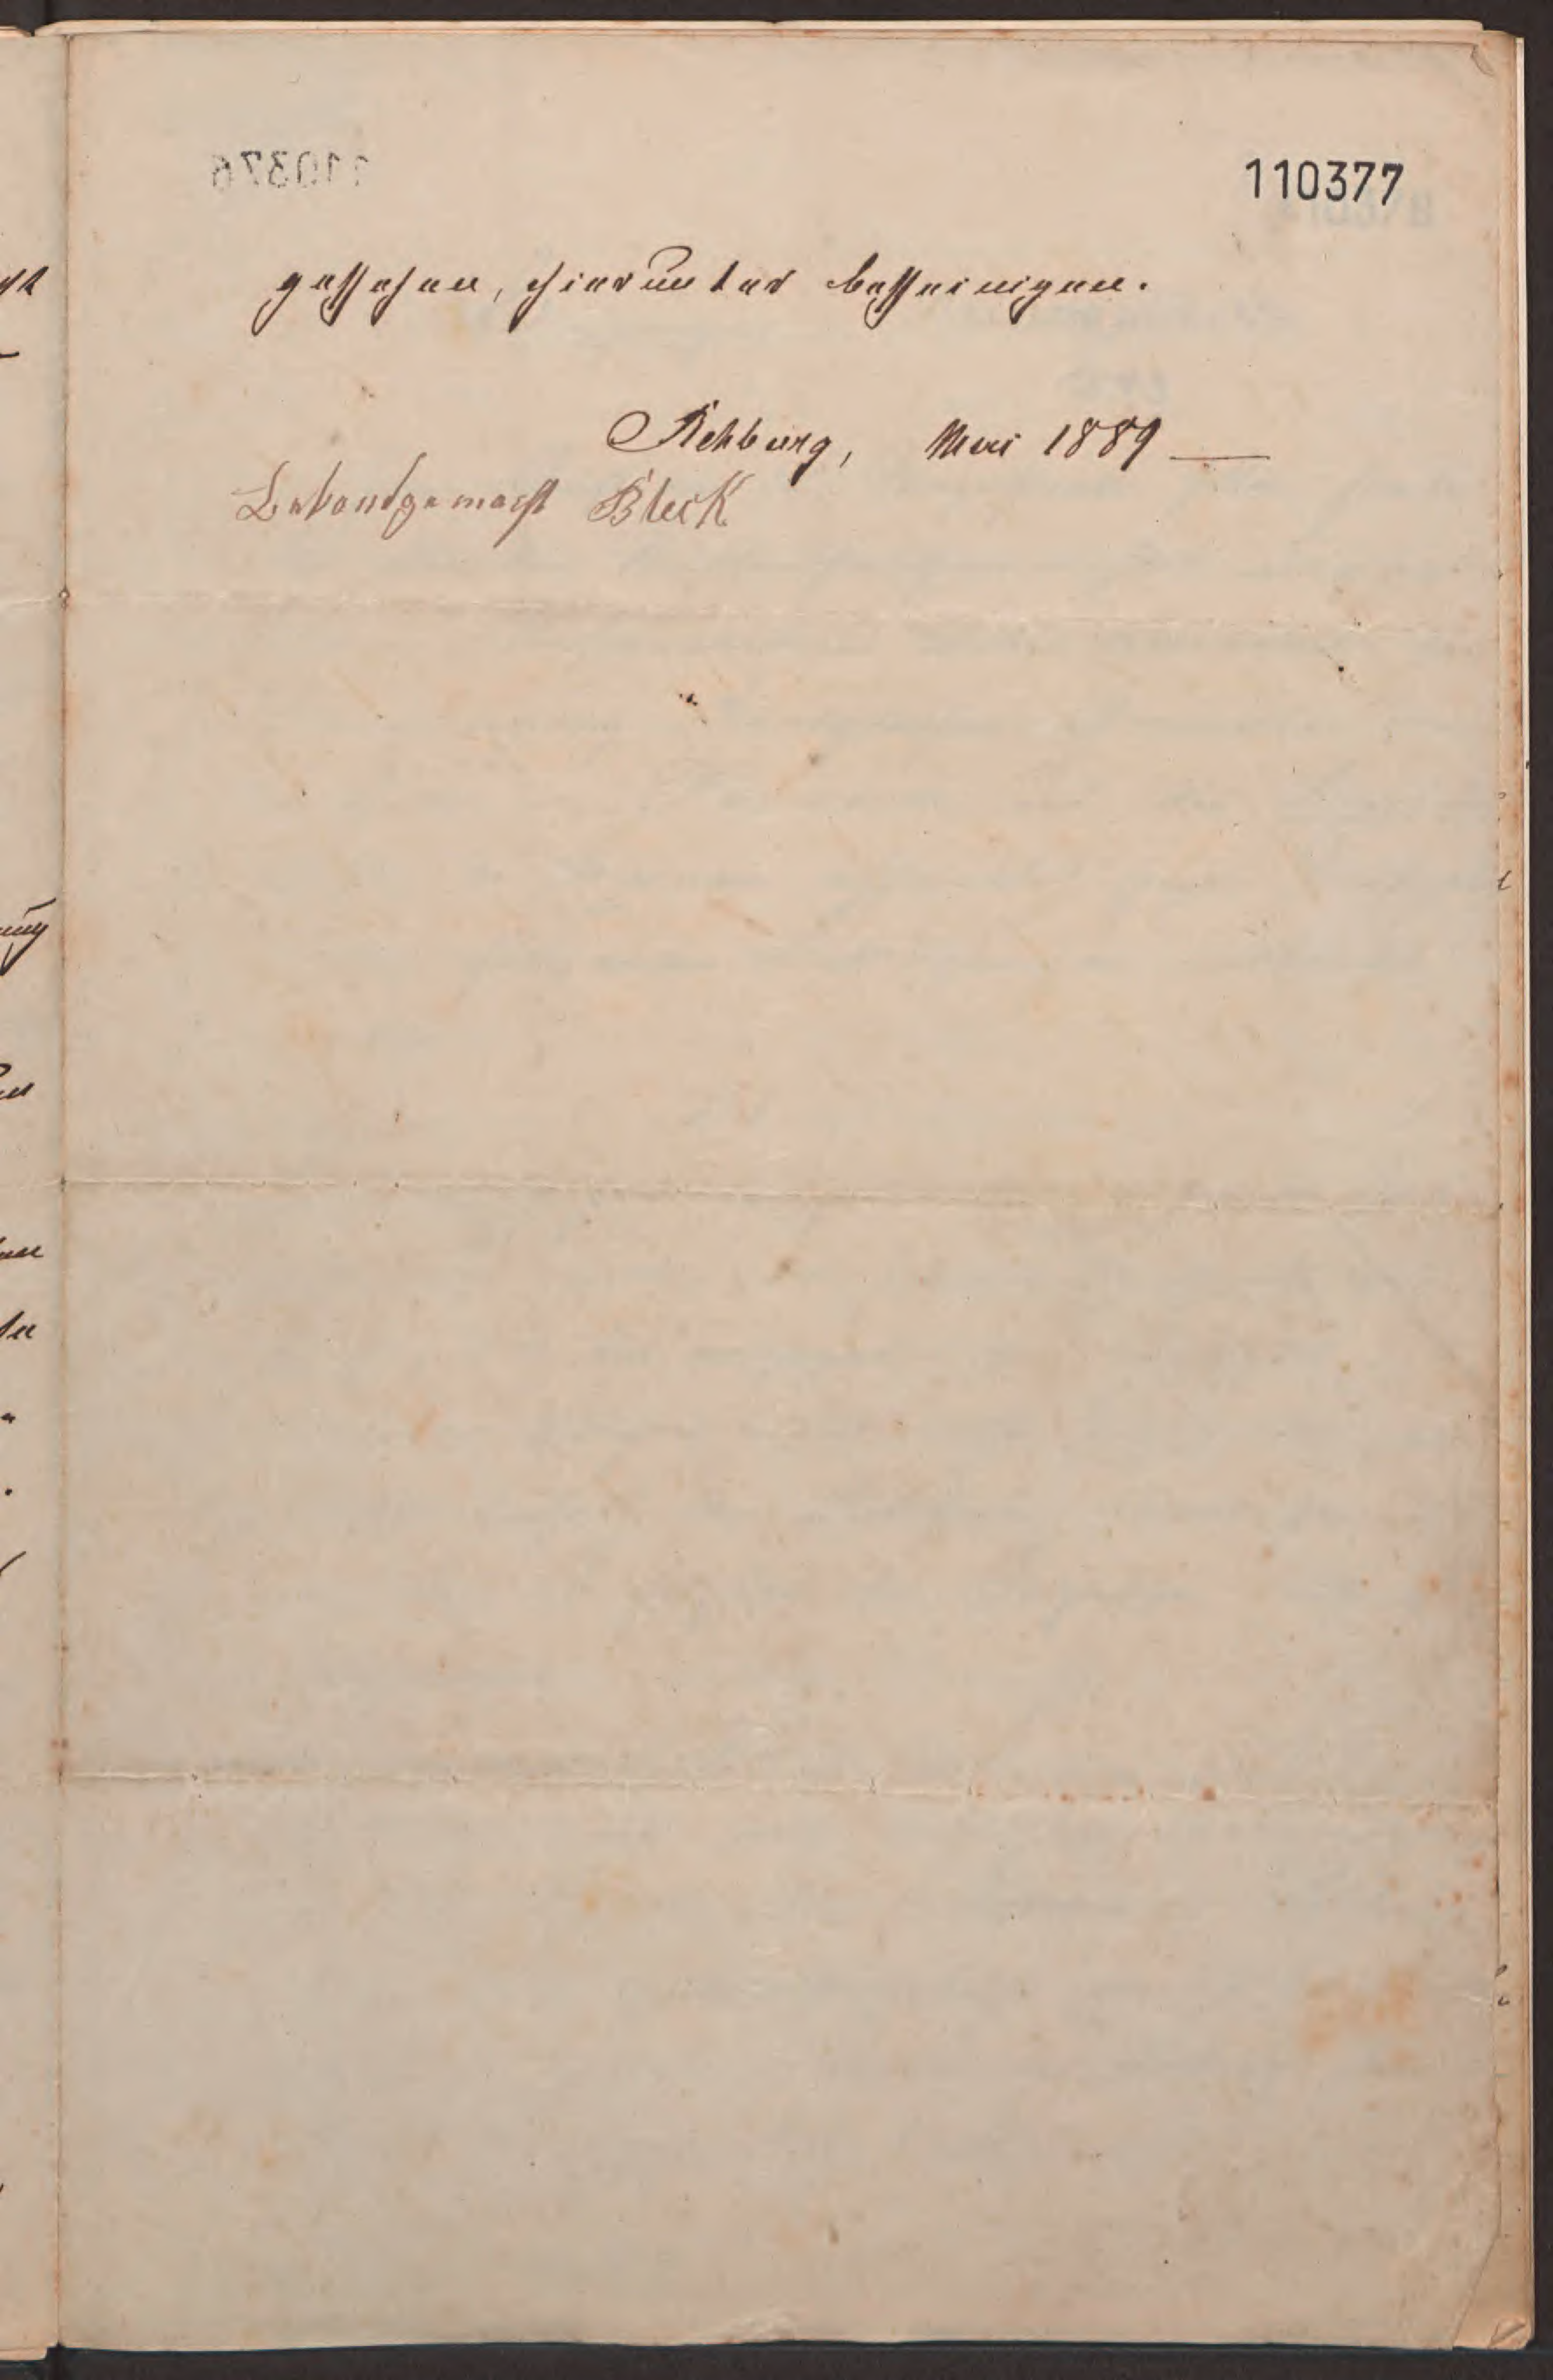 110377
geschehen, hierunter bescheinigen.
Rehburg, Mai 1889
Bekandgemacht Block